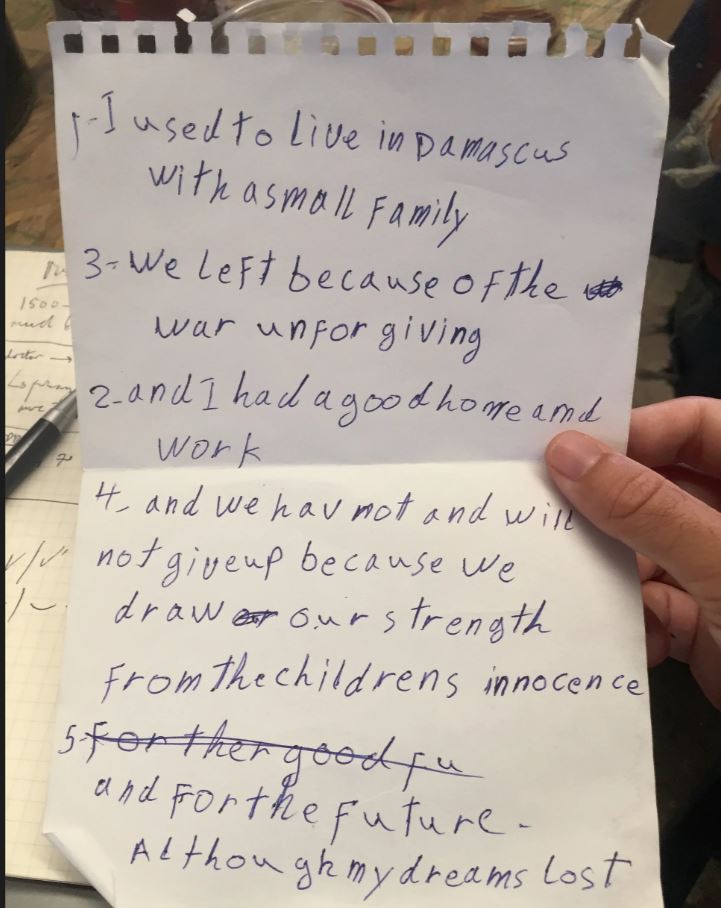 1-I used to live in Damascus
with a small Family
3-we left because of the
war unforgiving
2-and I had a good home amd
work
4- and we hav not and will
not give up because we
draw our strength
from the childrens innocence
5-For ther good fu
and For the future-
Although my dreams lost
1500-
doctor →